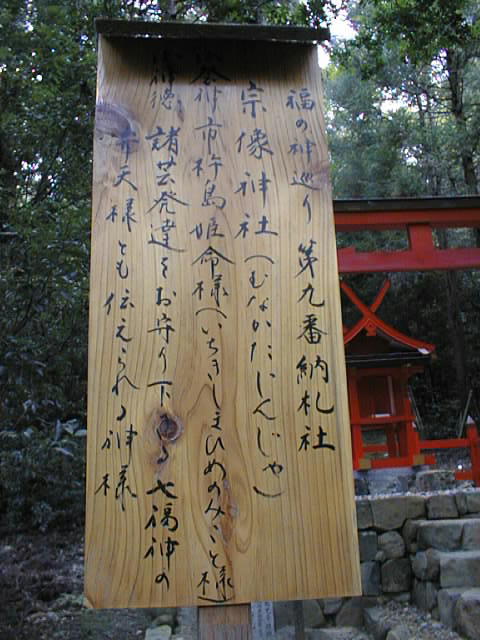 福の神巡り 第九番納札社
宗像神社(むなかたじんじゃ)
祭神 市杵島姫命様(いちきしまひめのみこと様)
神徳 諸芸発達をお守り下さる七福神の
弁天様とも伝えられる神様